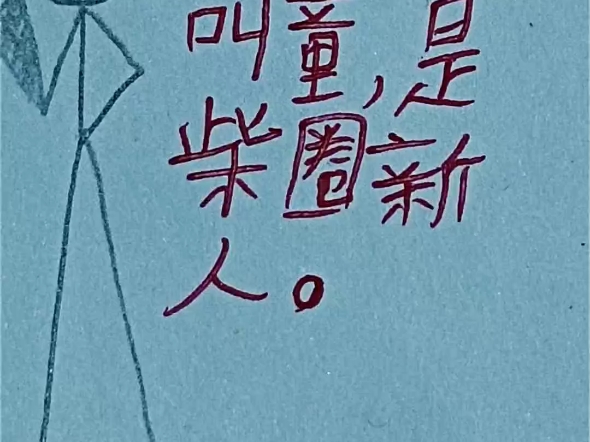 叫童,是
柴圈新
人。